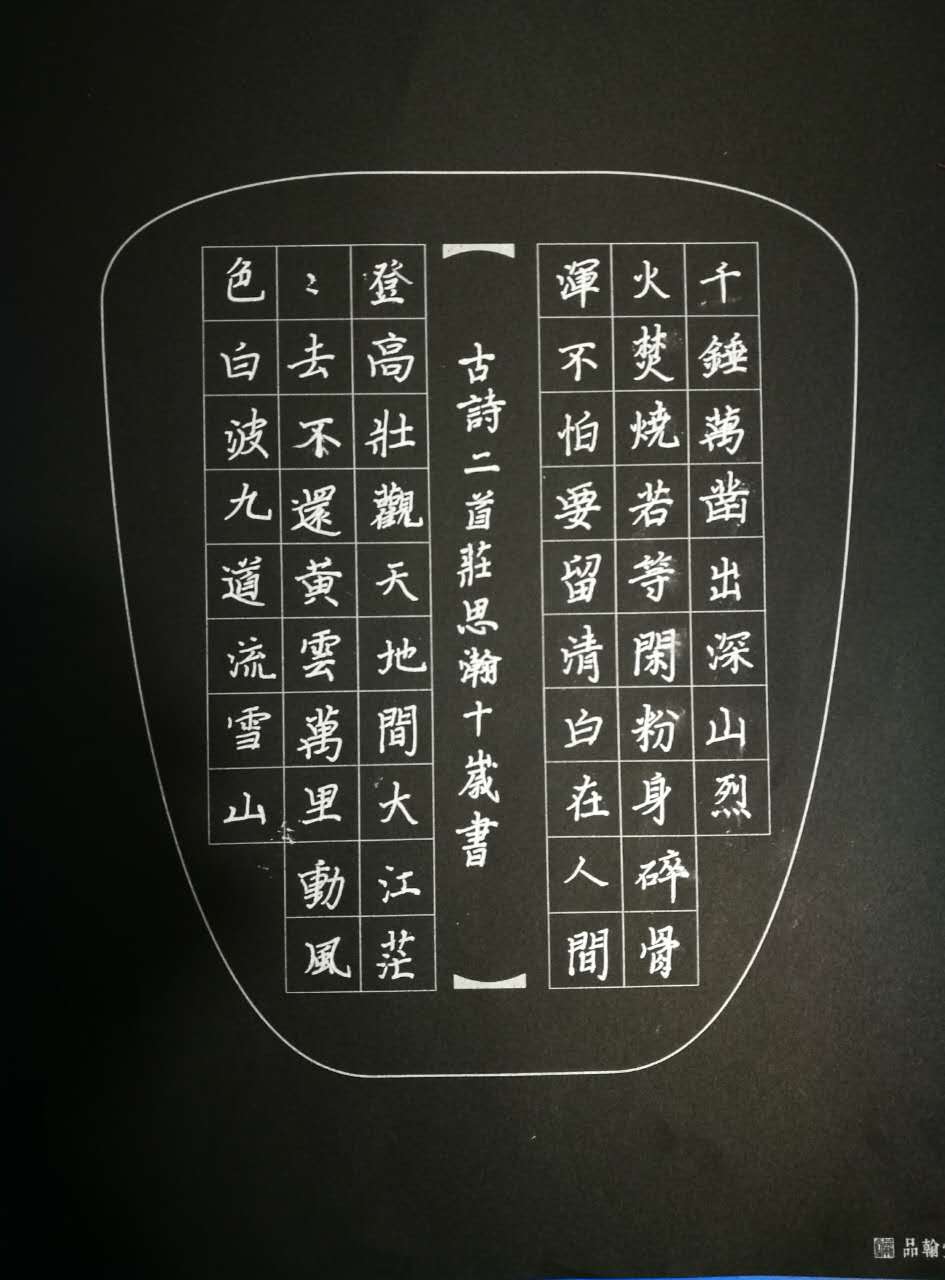 千錘萬凿出深山烈
火焚燒若等閑粉身碎骨
渾不怕要留清白在人間
古詩二首莊思瀚十歲書
登高壯觀天地間大江茫
〻去不還黃雲萬里動風
色白波九道流雪山
品翰